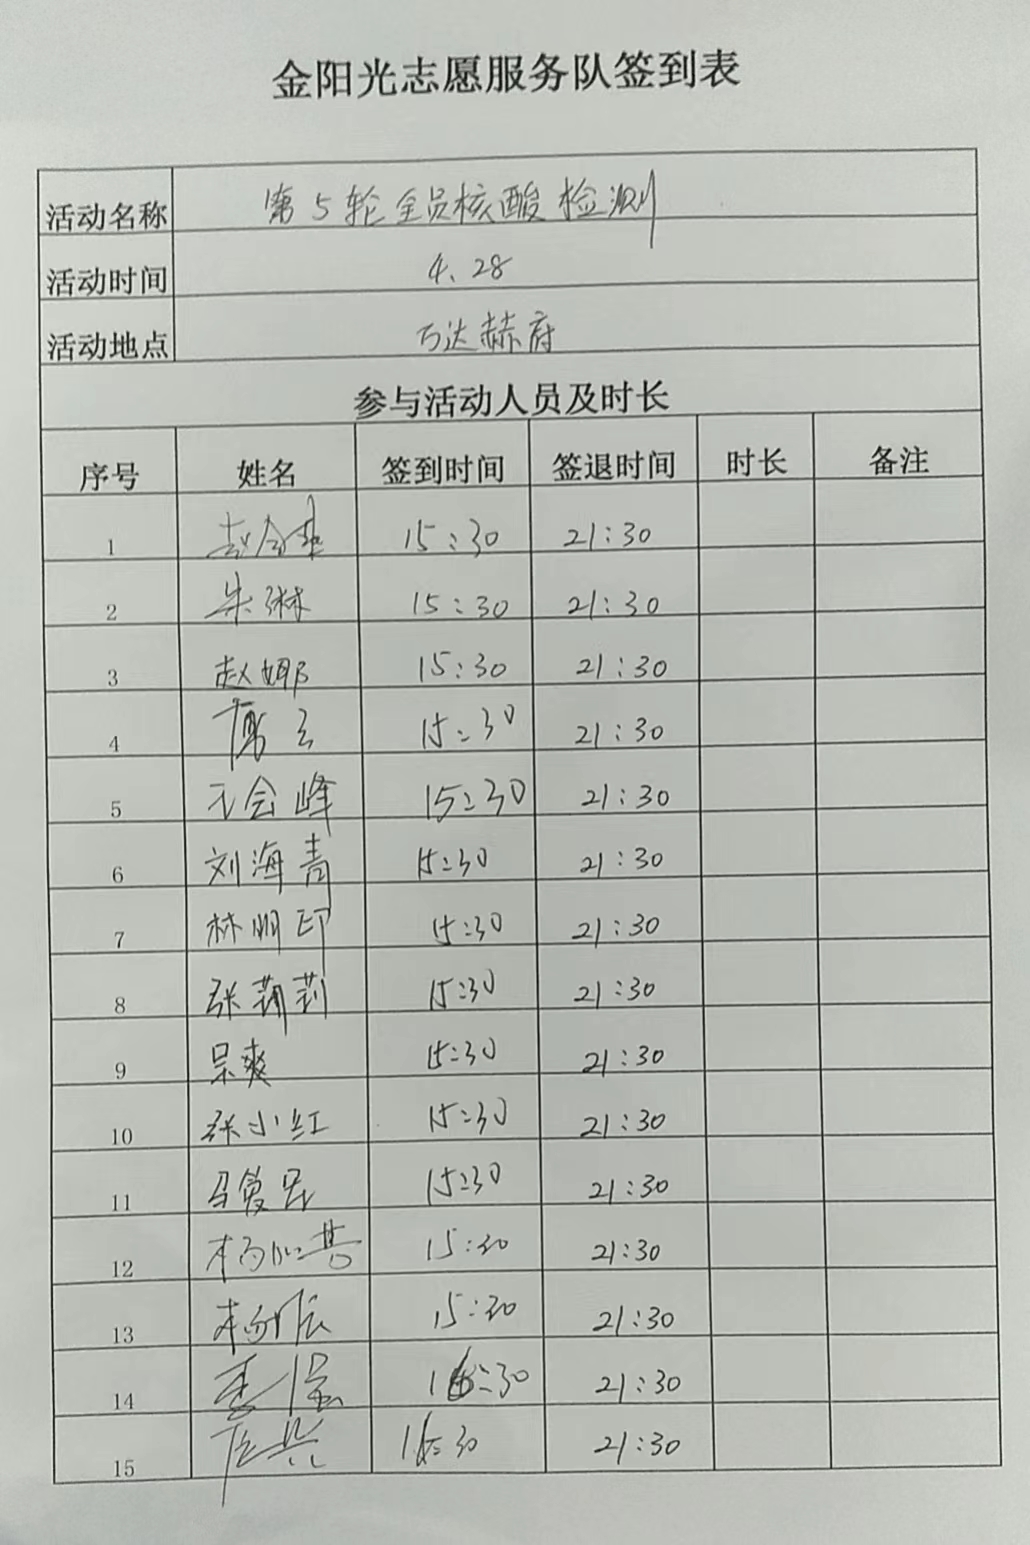 金阳光志愿服务队签到表
活动名称 第5轮全员核酸检测
活动时间 4、28
活动地点 万达赫府
参与活动人员及时长
序号 姓名 签到时间 签退时间 时长 备注
1 15:30 21:30
2 朱琳 15:30 21:30
3 赵娜 15:30 21:30
4 15:30 21:30
5 亓会峰 15:30 21:30
6 刘海青 15:30 21:30
7 林明印 15:30 21:30
8 张莉莉 15:30 21:30
9 吴爽 15:30 21:30
10 张小红 15:30 21:30
11 15:30 21:30
12 15:30 21:30
13 15:30 21:30
14 21:30
15 21:30